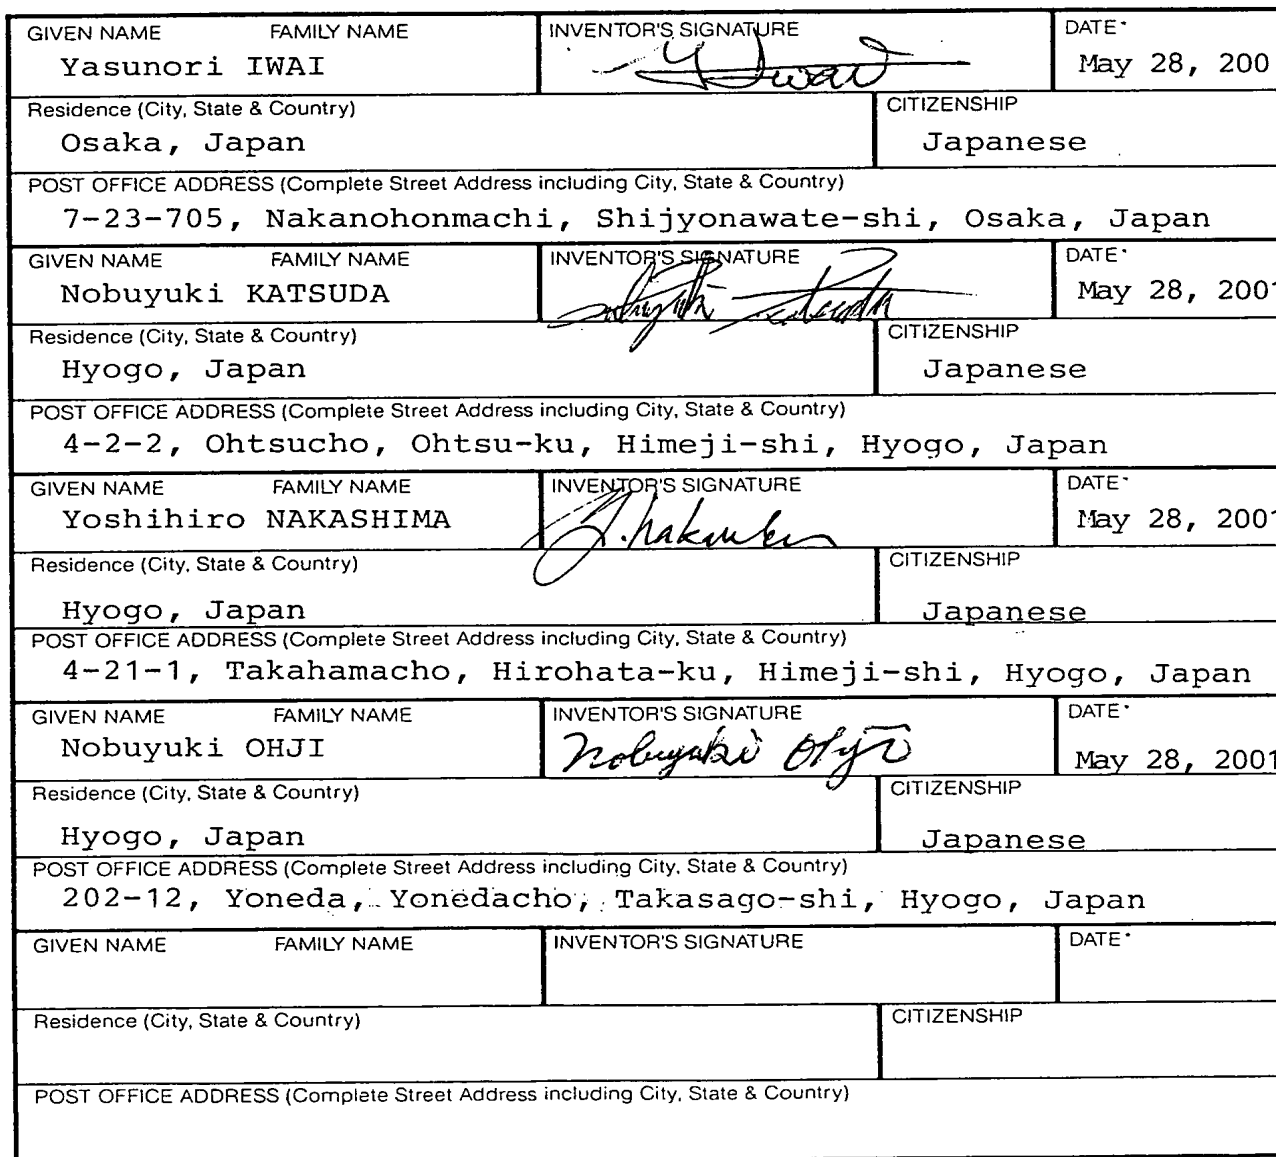 GIVEN NAME FAMILY NAME INVENTOR'S SIGNATURE DATE*
Yasunori IWAI Y Iwai May 28, 200
Residence (City, State & Country) CITIZENSHIP
Osaka, Japan Japanese
POST OFFICE ADDRESS (Complete Street Address including City, State & Country)
7-23-705, Nakanohonmachi, Shijyonawate-shi, Osaka, Japan
GIVEN NAME FAMILY NAME INVENTOR'S SIGNATURE DATE*
Nobuyuki KATSUDA May 28, 2001
Residence (City, State & Country) CITIZENSHIP
Hyogo, Japan Japanese
POST OFFICE ADDRESS (Complete Street Address including City, State & Country)
4-2-2, Ohtsucho, Ohtsu-ku, Himeji-shi, Hyogo, Japan
GIVEN NAME FAMILY NAME INVENTOR'S SIGNATURE DATE*
Yoshihiro NAKASHIMA May 28, 2001
Residence (City, State & Country) CITIZENSHIP
Hyogo, Japan Japanese
POST OFFICE ADDRESS (Complete Street Address including City, State & Country)
4-21-1, Takahamacho, Hirohata-ku, Himeji-shi, Hyogo, Japan
GIVEN NAME FAMILY NAME INVENTOR'S SIGNATURE DATE*
Nobuyuki OHJI Nobuyuki Ohji May 28, 2001
Residence (City, State & Country) CITIZENSHIP
Hyogo, Japan Japanese
POST OFFICE ADDRESS (Complete Street Address including City, State & Country)
202-12, Yoneda, Yonedacho, Takasago-shi, Hyogo, Japan
GIVEN NAME FAMILY NAME INVENTOR'S SIGNATURE DATE*
Residence (City, State & Country) CITIZENSHIP
POST OFFICE ADDRESS (Complete Street Address including City, State & Country)